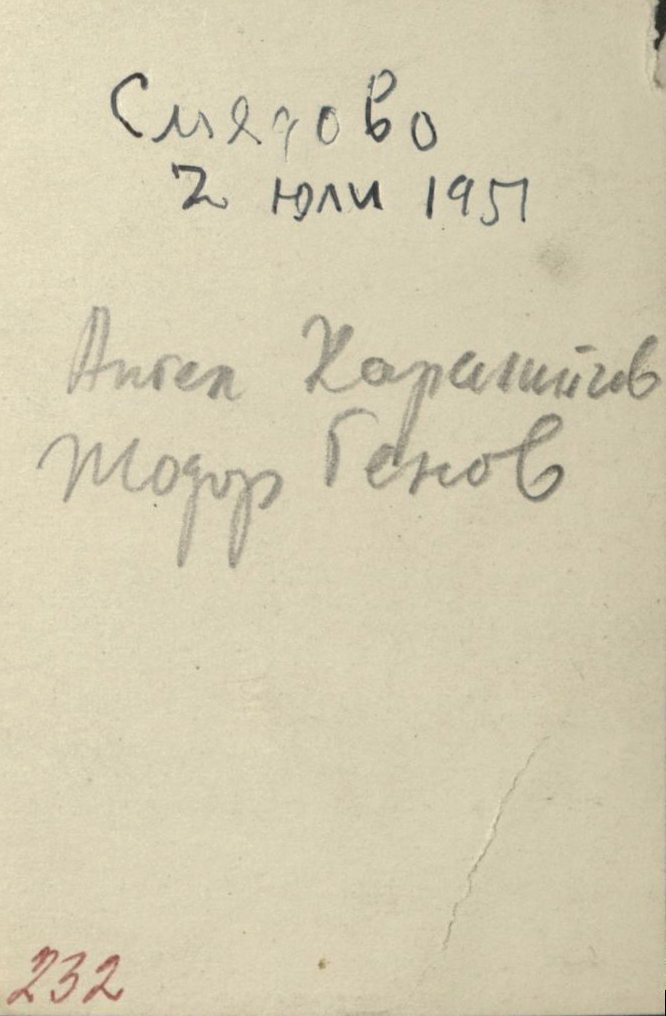 Смядово
2 юли 1951
Ангел Каралийчев
Тодор Генов
232